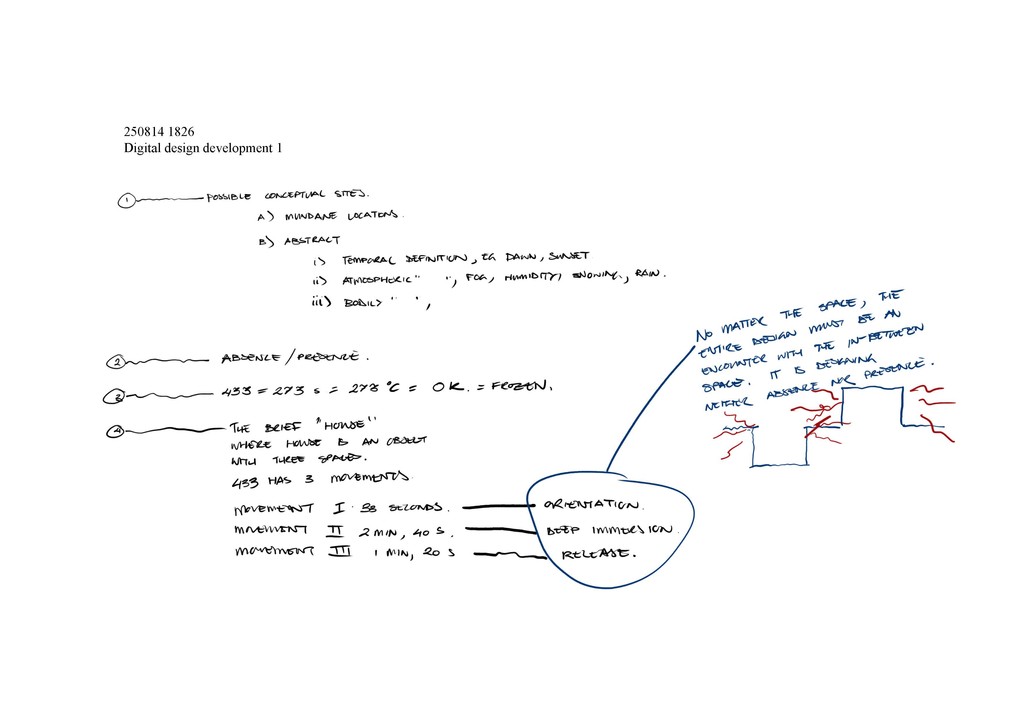 250814 1826
Digital design development 1
1 POSSIBLE CONCEPTUAL SITES.
A) MUNDANE LOCATIONS.
B) ABSTRACT
i) TEMPORAL DEFINITION, EG DAWN, SUNSET
ii) ATMOSPHERIC " ", FOG, HUMIDITY, SNOWING, RAIN.
iii) BODILY " ",
2 ABSENCE / PRESENCE.
3 433 = 273 s = 273 °C = 0 K. = FROZEN.
4 THE BRIEF "HOUSE"
WHERE HOUSE IS AN OBJECT
WITH THREE SPACES.
433 HAS 3 MOVEMENTS.
MOVEMENT I 33 SECONDS. ORIENTATION.
MOVEMENT II 2 MIN, 40 S. DEEP IMMERSION.
MOVEMENT III 1 MIN, 20 S RELEASE.
NO MATTER THE SPACE, THE
ENTIRE DESIGN MUST BE AN
ENCOUNTER WITH THE IN-BETWEEN
SPACE. IT IS DESIGNING
NEITHER ABSENCE NOR PRESENCE.